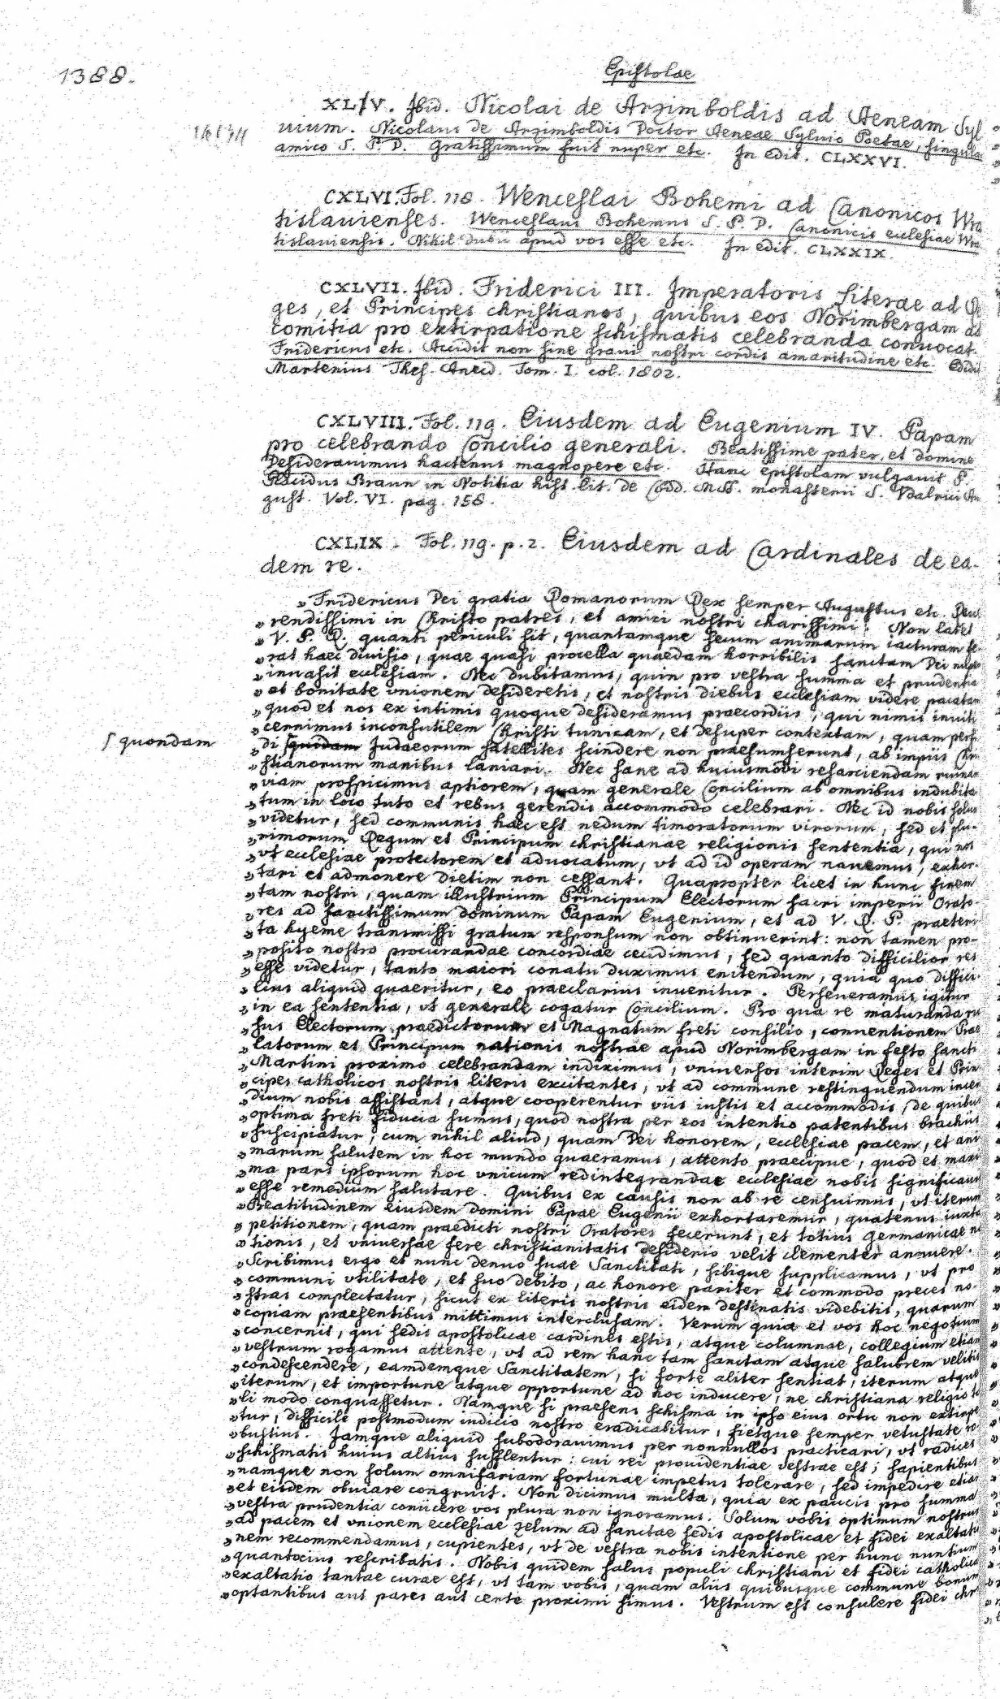 1388.
Epistolae
XLIV. Ibid. Nicolai de Arzimboldis ad Aeneam Syl
uium. Nicolaus de Arzimboldis Doctor Aeneae Sylvio Poetae, singula
amico S. P. D. Gratissimum fuit nuper etc. In edit. CLXXVI.
CXLVI. Fol. 118. Wenceslai Bohemi ad Canonicos Wra
tislauienses. Wenceslaus Bohemus S. P. D. Canonicis ecclesiae Wra
tislauiensis. Nihil dubii apud vos esse etc. In edit. CLXXIX.
CXLVII. Ibid. Friderici III. Imperatoris literae ad Re
ges, et Principes christianos, quibus eos Norimbergam ad
comitia pro extirpatione schismatis celebranda conuocat.
Fridericus etc. Accidit non sine graui nostri cordis amaritudine etc. Edidit
Martenius Thes. Anecd. Tom. I. col. 1802.
CXLVIII. Fol. 119. Eiusdem ad Eugenium IV. Papam
pro celebrando Concilio generali. Beatissime pater, et domine
Desiderauimus hactenus magnopere etc. Hanc epistolam vulgauit P.
Placidus Braun in Notitia hist. lit. de Codd. MSS. monasterii S. Vdalrici Au
gust. Vol. VI. pag. 158.
CXLIX. Fol. 119. p. 2. Eiusdem ad Cardinales de ea-
dem re.
„Fridericus Dei gratia Romanorum Rex semper Augustus etc. Reue
„rendissimi in Christo patres, et amici nostri charissimi. Non latet
„V. P. R. quanti periculi sit, quantamque secum animarum iacturam fe
„rat haec diuisio, quae quasi procella quaedam horribilis sanctam Dei nuper
„inuasit ecclesiam. Nec dubitamus, quin pro vestra summa et prudentia
„et bonitate vnionem desideretis, et nostris diebus ecclesiam videre pacatam
„quod et nos ex intimis quoque desideramus praecordiis, qui nimis inuiti
„cernimus inconsutilem Christi tunicam, et desuper contextam, quam perfi
∫ quondam
„di quidam Iudaeorum satellites scindere non praesumserunt, ab impiis Chri
„stianorum manibus laniari. Nec sane ad huiusmodi resarciendam ruinam
„viam prospicimus aptiorem, quam generale Concilium ab omnibus indubita
„tum in loco tuto et rebus gerendis accommodo celebrari. Nec id nobis solus
„videtur, sed communis haec est nedum timoratorum virorum, sed et plu-
„rimorum Regum et Principum christianae religionis sententia, qui nos
„vt ecclesiae protectorem et aduocatum, vt ad id operam nauemus, exhor-
„tari et admonere dietim non cessant. Quapropter licet in hunc finem
„tam nostri, quam illustrium Principum Electorum sacri imperii Orato-
„res ad sanctissimum dominum Papam Eugenium, et ad V. R. P. praeteri
„ta hyeme transmissi gratum responsum non obtinuerint: non tamen pro-
„posito nostro procurandae concordiae cedimus, sed quanto difficilior res
„esse videtur, tanto maiori conatu duximus enitendum, quia quo diffici
„lius aliquid quaeritur, eo praeclarius inuenitur. Perseueramus igitur
„in ea sententia, vt generale cogatur Concilium. Pro qua re maturanda rur
„sus Electorum praedictorum et Magnatum freti consilio, conuentionem Prae
„latorum et Principum nationis nostrae apud Norimbergam in festo sancti
„Martini proximo celebrandam indiximus, vniuersos interim Reges et Prin
„cipes catholicos nostris literis excitantes, vt ad commune restinguendum incen
„dium nobis assistant, atque cooperentur viis iustis et accommodis, de quibus
„optima freti fiducia sumus, quod nostra per eos intentio patentibus brachiis
„suscipiatur, cum nihil aliud, quam Dei honorem, ecclesiae pacem, et ani
„marum salutem in hoc mundo quaeramus, attento praecipue, quod et maxi
„ma pars ipsorum hoc vnicum redintegrandae ecclesiae nobis significauit
„esse remedium salutare. Quibus ex causis non ab re censuimus, vt iterum
„Beatitudinem eiusdem domini Papae Eugenii exhortaremur, quatenus iuxta
„petitionem, quam praedicti nostri Oratores fecerunt, et totius germanicae na
„tionis, et vniuersae fere christianitatis desiderio velit clementer annuere.
„Scribimus ergo et nunc denuo suae Sanctitati, sibique supplicamus, vt pro
„communi vtilitate, et suo debito, ac honore pariter et commodo preces no-
„stras complectatur, sicut ex literis nostris eidem destinatis videbitis, quarum
„copiam praesentibus mittimus interclusam. Verum quia et vos hoc negotium
„concernit, qui sedis apostolicae cardines estis, atque columnae, collegium etiam
„vestrum rogamus attente, vt ad rem hanc tam sanctam atque salubrem velitis
„condescendere, eamdemque Sanctitatem, si forte aliter sentiat, iterum atque
„iterum, et importune atque opportune ad hoc inducere, ne christiana religio ta
„li modo conquassetur. Namque si praesens schisma in ipso eius ortu non extirpe
„tur, difficile postmodum iudicio nostro eradicabitur, fietque semper vetustate ro
„bustius. Iamque aliquid subodorauimus per nonnullos practicari, vt radices
„schismatis huius altius suffulentur: cui rei prouidentiae vestrae est; sapientibus
„namque non solum omnifariam fortunae impetus tolerare, sed impedire etiam
„et eisdem obuiare congruit. Non dicimus multa, quia ex paucis pro summa
„vestra prudentia coniicere vos plura non ignoramus. Solum vobis optimum nostrum
„ad pacem et vnionem ecclesiae zelum ad sanctae sedis apostolicae et fidei exaltatio
„nem recommendamus, cupientes, vt de vestra nobis intentione per hunc nuntium
„quantocius rescribatis. Nobis quidem salus populi christiani et fidei catholicae
„exaltatio tantae curae est, vt tam vobis, quam aliis quibusque commune bonum
„optantibus aut pares aut certe proximi simus. Vestrum est consulere fidei chr